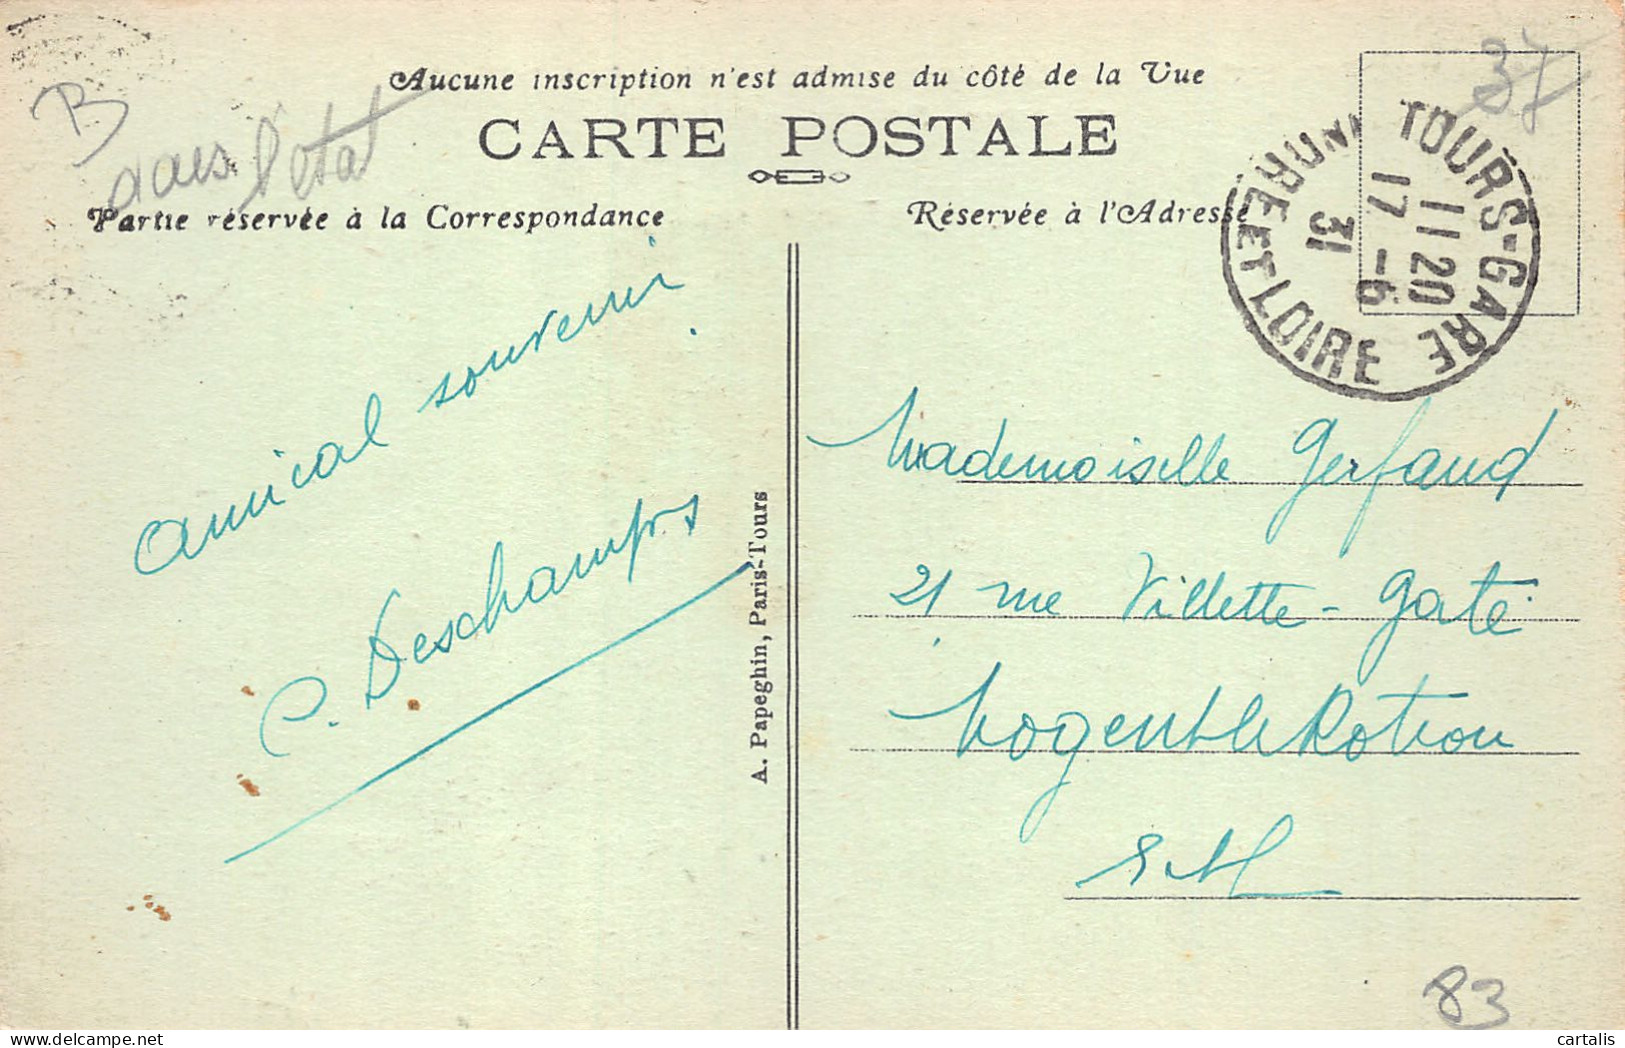 Aucune inscription n'est admise du côté de la Vue
CARTE POSTALE
Partie réservée à la Correspondance
Réservée à l'Adresse
B
dans l'état
37
TOURS-GARE
11 20
17 -6
31
INDRE ET LOIRE
Amical souvenir
C. Deschamps
A. Papeghin, Paris-Tours
Mademoiselle Gerfaud
21 rue Villette-Gaté
Nogent le Rotrou
E. et L.
83
cartalis